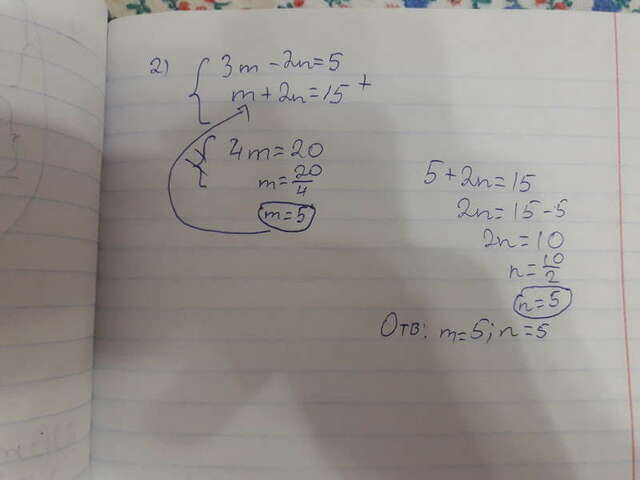 2) { 3m - 2n = 5
m + 2n = 15 +
{ 4m = 20
m = 20/4
m = 5
5 + 2n = 15
2n = 15 - 5
2n = 10
n = 10/2
n = 5
Отв: m = 5; n = 5